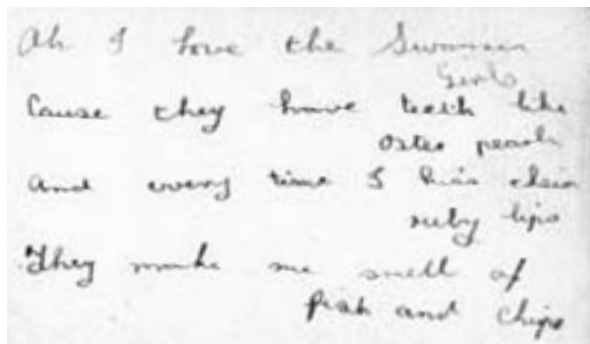 Oh I love the Swansea
Girls
Cause they have teeth like
Oster pearls
And every time I kiss their
ruby lips
They make me smell of
fish and chips